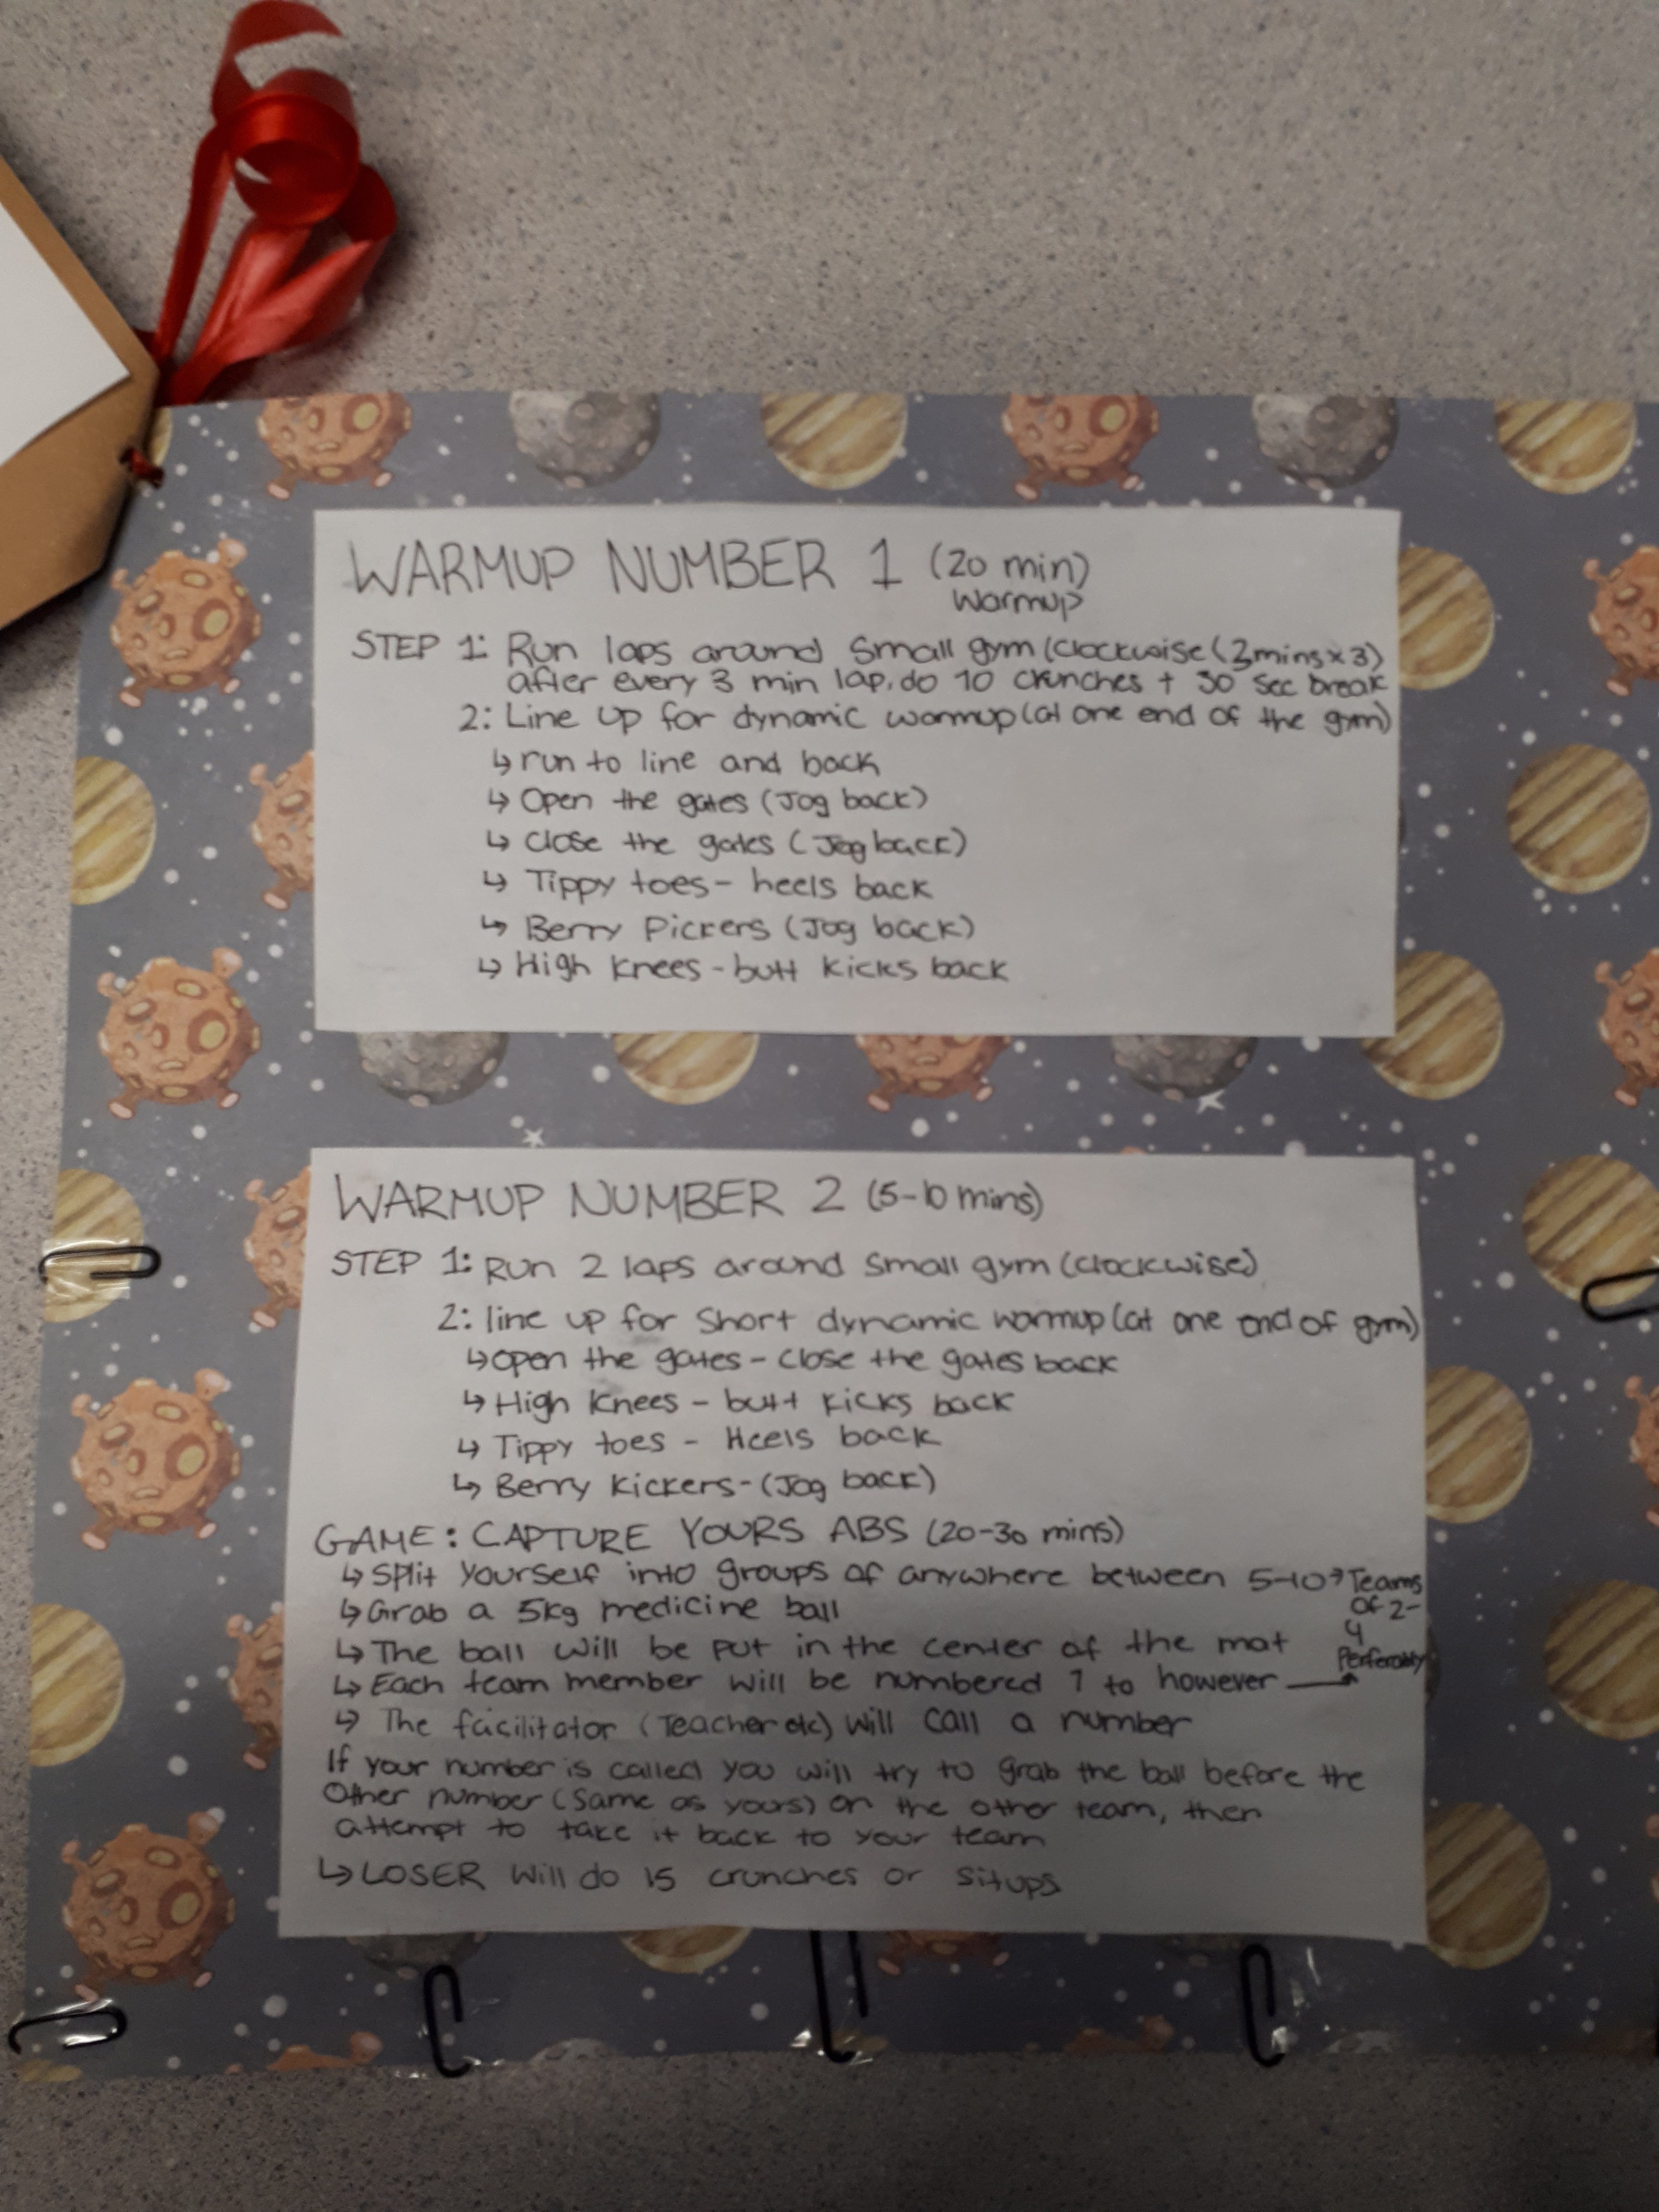 WARMUP NUMBER 1 (20 min)
Warmup
STEP 1: Run laps around small gym (clockwise (3mins x 3)
after every 3 min lap, do 10 crunches + 30 sec break
2: Line up for dynamic warmup (at one end of the gym)
↳ run to line and back
↳ Open the gates (Jog back)
↳ Close the gates (Jog back)
↳ Tippy toes - heels back
↳ Berry Pickers (Jog back)
↳ High knees - butt kicks back
WARMUP NUMBER 2 (5-10 mins)
STEP 1: Run 2 laps around small gym (clockwise)
2: line up for short dynamic warmup (at one end of gym)
↳ open the gates - close the gates back
↳ High knees - butt kicks back
↳ Tippy toes - Heels back
↳ Berry Kickers - (Jog back)
GAME: CAPTURE YOURS ABS (20-30 mins)
↳ Split yourself into groups of anywhere between 5-10 → Teams
of 2-
4
Perferably
↳ Grab a 5kg medicine ball
↳ The ball will be put in the center of the mat
↳ Each team member will be numbered 1 to however
↳ The facilitator (Teacher etc) will call a number
If your number is called you will try to grab the ball before the
Other number (same as yours) on the other team, then
attempt to take it back to your team
↳ LOSER will do 15 crunches or situps